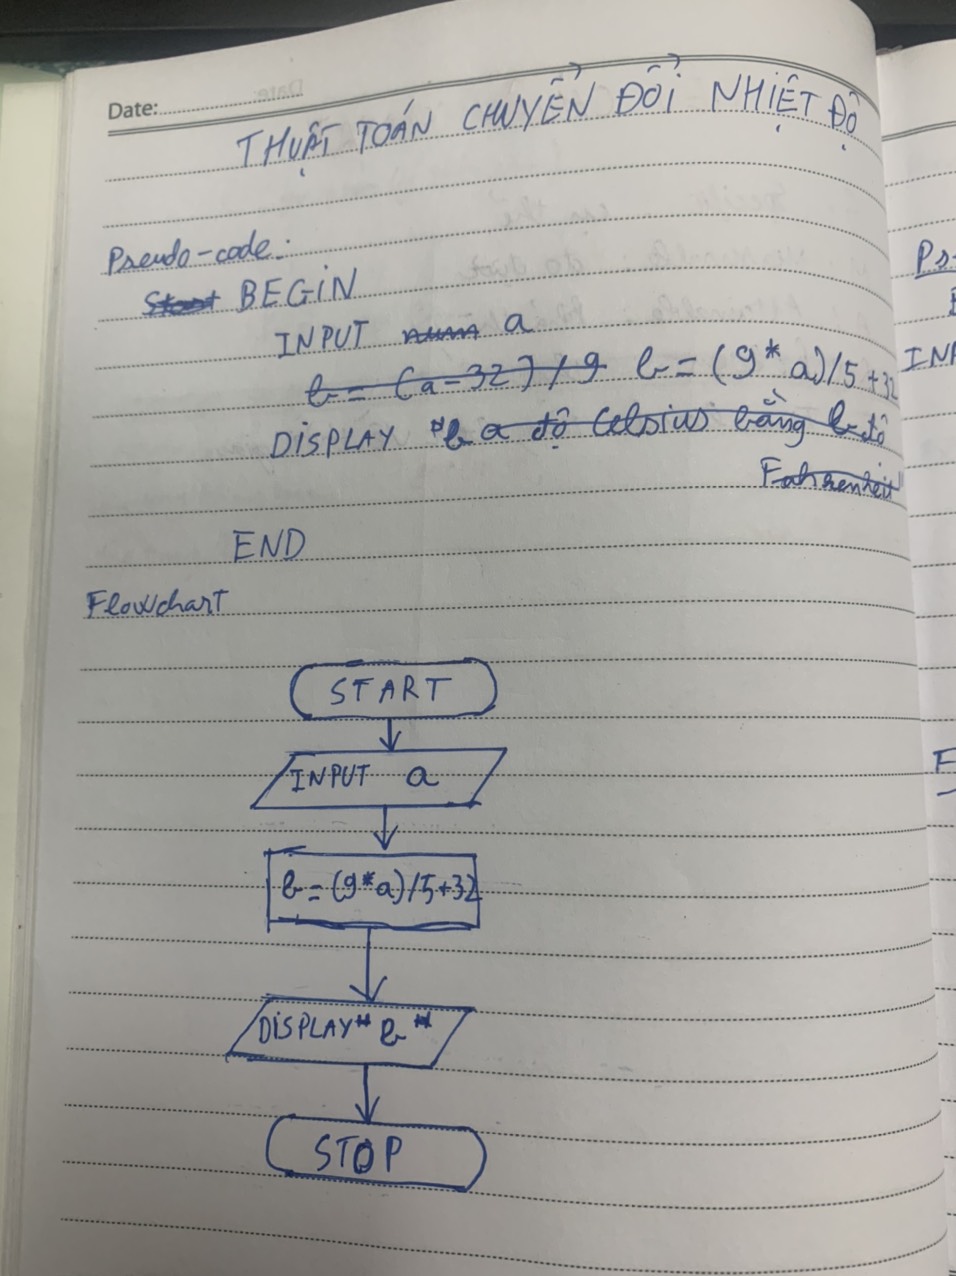 Date:
THUẬT TOÁN CHUYỂN ĐỔI NHIỆT ĐỘ
Pseudo-code:
Start BEGIN
INPUT num a
b = (a-32)/9 b = (9* a)/5+32
DISPLAY "b a độ Celsius bằng b độ
Fahrenheit"
END
Flowchart
START
INPUT a
b = (9*a)/5+32
DISPLAY " b "
STOP
Ps
INP
F